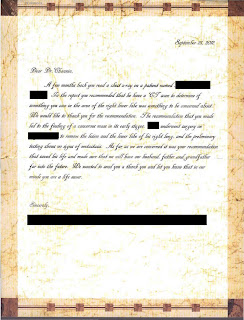 September 28, 2012
Dear Dr.
A few months back you read a chest x-ray on a patient named
In the report you recommended that he have a CT scan to determine if
something you saw in the area of the right lower lobe was something to be concerned about.
We would like to thank you for the recommendation. The recommendation that you made
led to the finding of a cancerous mass in its early stages. underwent surgery on
to remove the lesion and the lower lobe of his right lung, and the preliminary
testing shows no signs of metastasis. As far as we are concerned it was your recommendation
that saved his life and made sure that we will have our husband, father and grandfather
far into the future. We wanted to send you a thank you and let you know that in our
minds you are a life saver.
Sincerely,